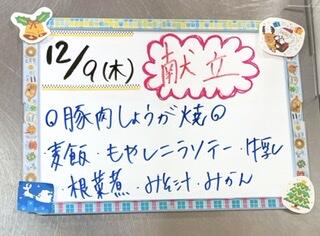 12/9(木) 献立
○豚肉しょうが焼○
麦飯・もやしニラソテー・牛乳
・根菜煮・みそ汁・みかん